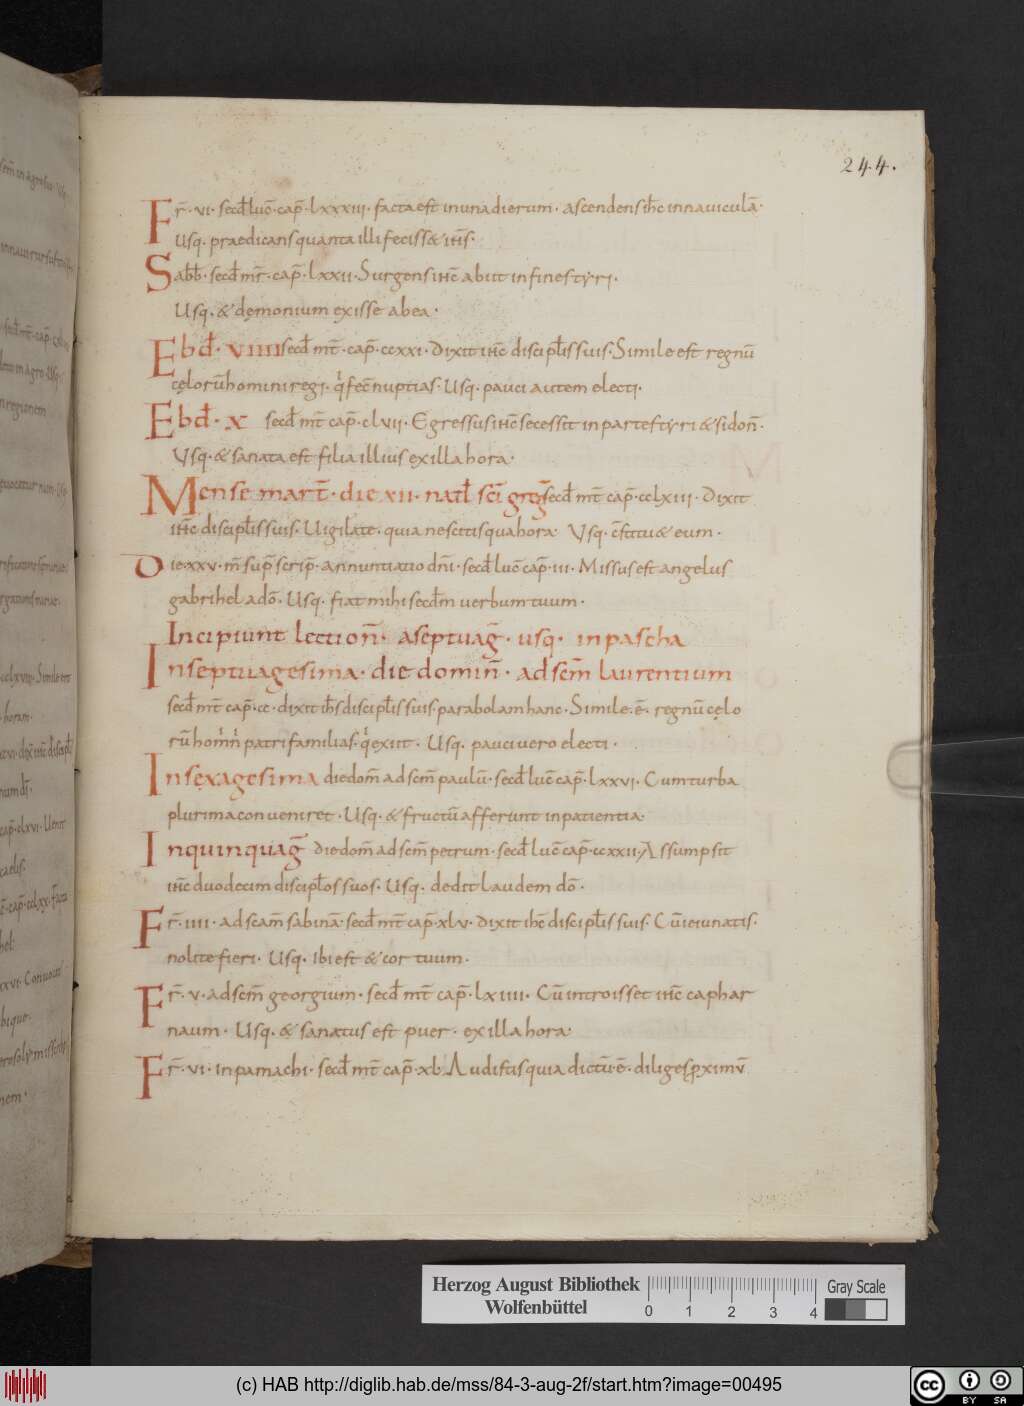 244.
Fr̄. vi. secd̄ luc̄. cap̄. lxxxiii. facta est in una dierum. ascendens ih̄c in naviculā.
Usq. praedicans quanta illi fecisset ih̄s.
Sabb̄. secd̄ mr̄. cap̄. lxxii. Surgens ih̄c abiit in fines tyri.
Usq. & dęmonium exisse a bea.
Ebd̄. viiii secd̄ mt̄. cap̄. ccxxi. Dixit ih̄c discipl̄is suis. Simile est regnū
cęlorū homini regi. q̇ fec̄ nuptias. Usq. pauci autem electi.
Ebd̄. x secd̄ mt̄ cap̄. clvii. Egressus ih̄c secessit in partes tyri & sidon̄.
Usq. & sanata est filia illius ex illa hora.
Mense mart̄. die xii. natl̄ sc̄i grḡ secd̄ mt̄ cap̄. cclxiii. Dixit
ih̄c discipl̄is suis. Uigilate. quia nescitis qua hora. Usq. c̄stitu& eum.
Die xxv. m̄ sup̄ scrip̄. annuntiatio dn̄i. secd̄ luc̄ cap̄. iii. Missus est angelus
gabrihel a dō. Usq. fiat mihi secd̄m uerbum tuum.
Incipiunt lection̄. a septuaḡ. usq. in pascha
In septuagesima. die domin̄. ad scm̄ laurentium
secd̄ mt̄ cap̄. cc. dixit ih̄s discipl̄is suis. parabolam hanc. Simile. ē. regnū cęlo
rū homīnī patri familias. q̇ exiit. Usq. pauci vero electi.
In sexagesima die dom̄ ad scm̄ paulū. secd̄ luc̄ cap̄. lxxvi. Cum turba
plurima conveniret. Usq. & fructū afferunt in patientia.
In quinquaḡ die dom̄ ad scm̄ petrum. secd̄ luc̄ cap̄. ccxxii. Assumpsit
ih̄c duodecim discipl̄os suos. Usq. dedit laudem dō.
Fr̄. iiii. ad scam̄ sabinā. secd̄ mt̄ cap̄. xlv. dixit ih̄c discipl̄is suis. Cū ieiunatis.
nolite fieri. Usq. Ibi est & cor tuum.
Fr̄. v. ad scm̄ georgium. secd̄ mt̄ cap̄. lxiiii. Cū introisset ih̄c caphar
naum. Usq. & sanatus est puer. ex illa hora.
Fr̄. vi. in pamachi. secd̄ mt̄ cap̄. xl. Audistis quia dictū ē. diliges p̱ximū
Herzog August Bibliothek
Wolfenbüttel
0 1 2 3 4
Gray Scale
(c) HAB http://diglib.hab.de/mss/84-3-aug-2f/start.htm?image=00495
cc BY SA